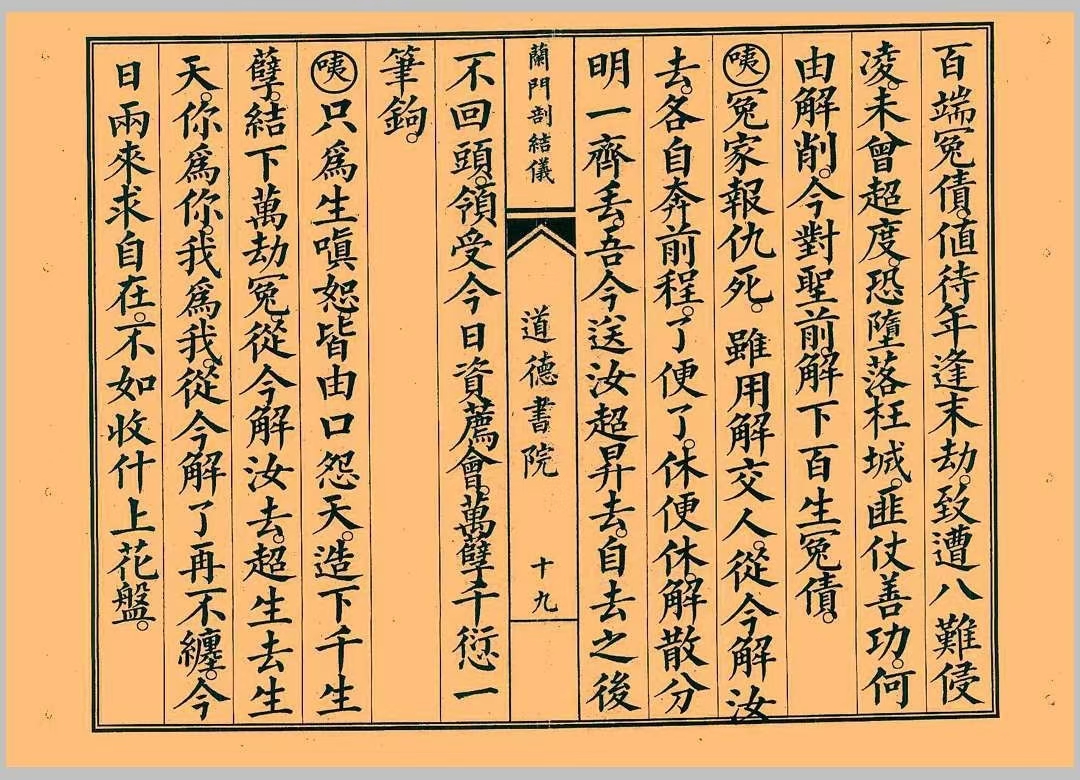 百端冤債。值待年逢末劫。致遭八難侵
凌。未曾超度。恐墮落枉城。匪仗善功。何
由解削。今對聖前。解下百生冤債。
咦冤家報仇死。雖用解交人。從今解汝
去。各自奔前程。了便了。休便休。解散分
明一齊丟。吾今送汝超昇去。自去之後
蘭門剖結儀
道德書院
十九
不回頭。領受今日資薦會。萬孽千愆一
筆鉤。
咦只為生嗔恕。皆由口怨天。造下千生
孽。結下萬劫冤。從今解汝去。超生去生
天。你為你。我為我。從今解了再不纏。今
日兩來求自在。不如收什上花盤。